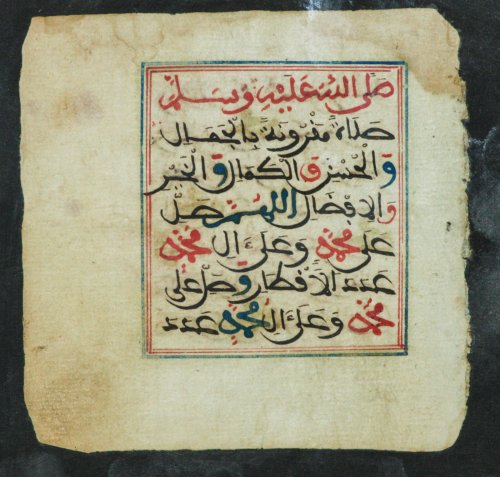 صَلَّى اللَّهُ عَلَيْهِ وَسَلَّمَ
صَلَاةً مَقْرُونَةً بِالْجَمَالِ
وَالْحُسْنِ وَالْكَمَالِ وَالْخَيْرِ
وَالْإِفْضَالِ اللَّهُمَّ صَلِّ
عَلَى مُحَمَّدٍ وَعَلَى ءَالِ مُحَمَّدٍ
عَدَدَ الْأَقْطَارِ وَصَلِّ عَلَى
مُحَمَّدٍ وَعَلَى ءَالِ مُحَمَّدٍ عَدَدَ